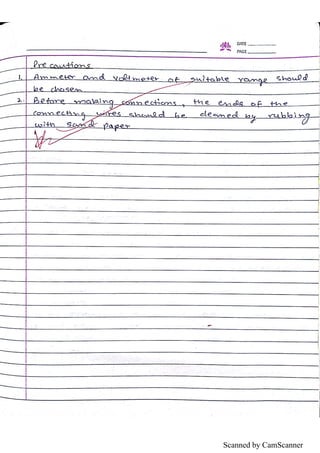 DATE
PAGE
Precautions
1. Ammeter and voltmeter of suitable range should
be chosen
2. Before making connections, the ends of the
connecting wires should be cleaned by rubbing
with sand paper
Scanned by CamScanner